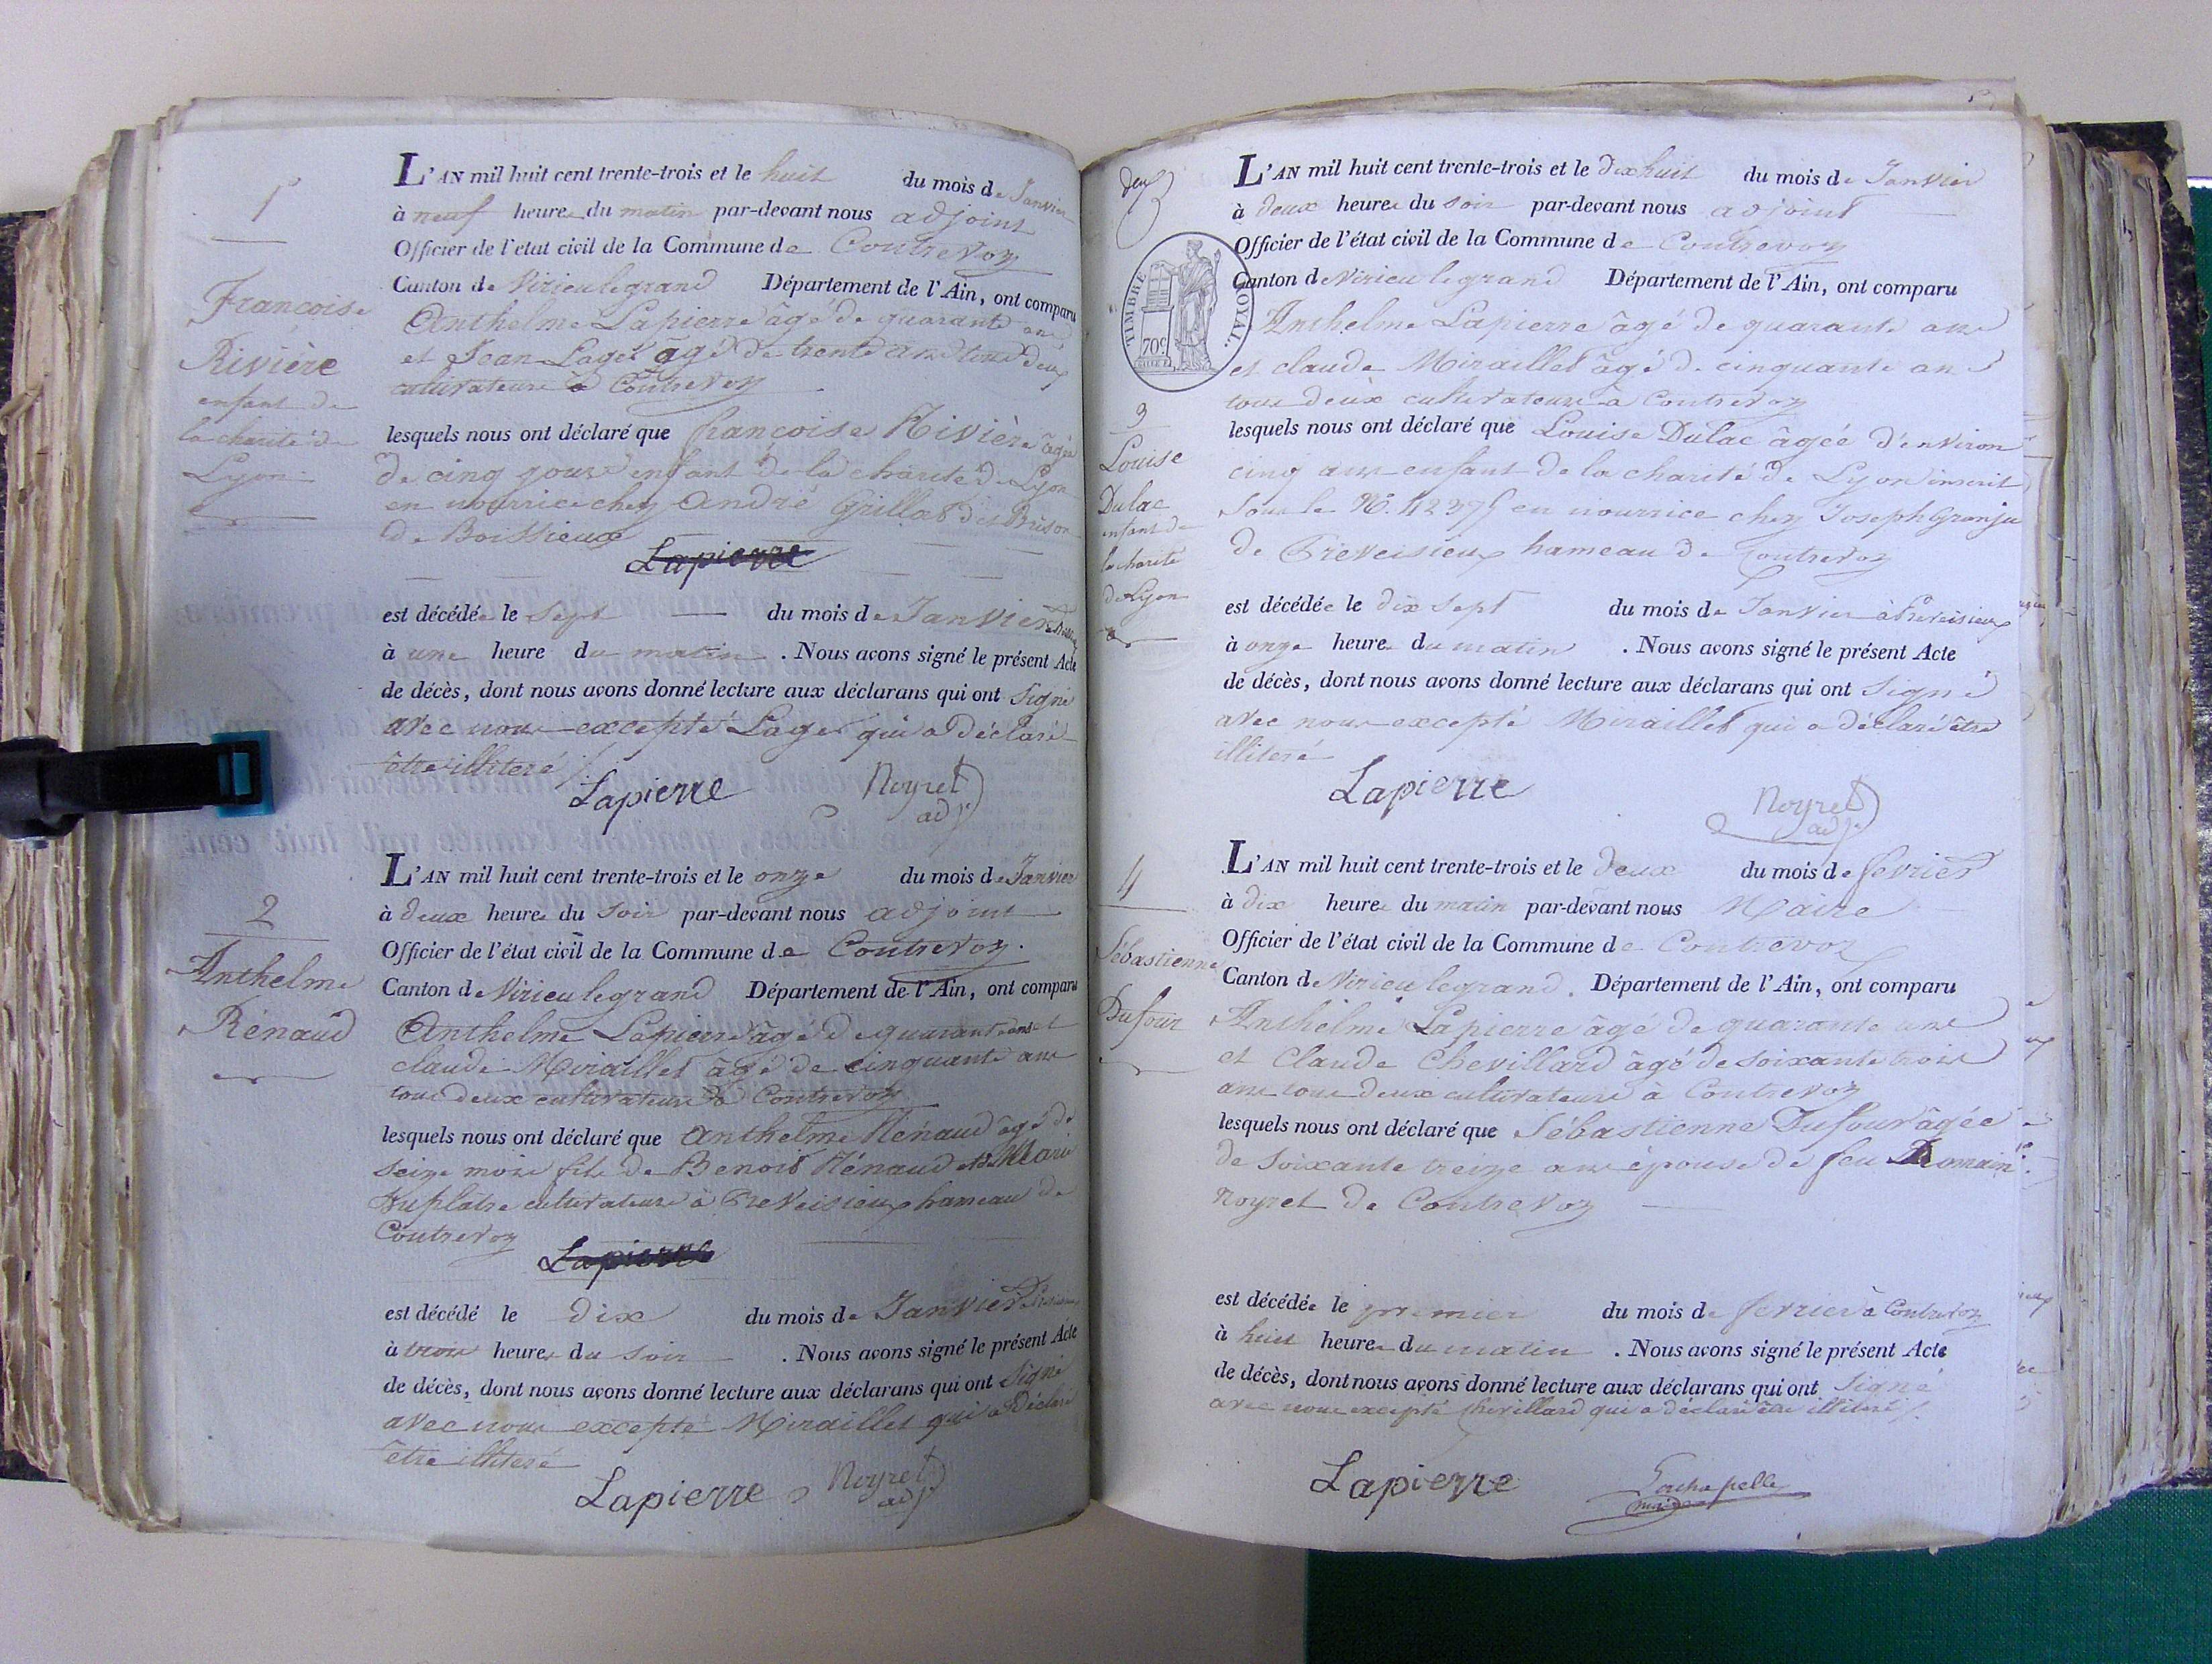 1
Françoise
Rivière
enfant de
la charité de
Lyon
L'AN mil huit cent trente-trois et le huit du mois de Janvier
à neuf heures du matin par-devant nous adjoint
Officier de l'etat civil de la Commune de Contrevoz
Canton de Virieu le grand Département de l'Ain, ont comparu
Anthelme Lapierre âgé de quarante ans
et Jean Lager âgé de trente ans tous deux
cultivateurs à Contrevoz
lesquels nous ont déclaré que françoise Rivière âgée
de cinq jours enfant de la charité de Lyon
en nourrice chez André Grillot
de Boissieux
Lapierre
est décédée le Sept du mois de Janvier
à une heure du matin . Nous avons signé le présent Acte
de décès, dont nous avons donné lecture aux déclarans qui ont Signé
avec nous excepté Lager qui a déclaré
être illiteré
Lapierre Noyret adj.
2
Anthelme
Rénaud
L'AN mil huit cent trente-trois et le onze du mois de Janvier
à deux heures du soir par-devant nous adjoint
Officier de l'état civil de la Commune de Contrevoz.
Canton de Virieu le grand Département de l'Ain, ont comparu
Anthelme Lapierre âgé de quarante ans et
claude Miraillet âgé de cinquante ans
tous deux cultivateurs à Contrevoz
lesquels nous ont déclaré que Anthelme Rénaud âgé de
seize mois fils de Benoit Rénaud et de Marie
Duplatre cultivateurs à Preveisieux hameau de
Contrevoz
Lapierre
est décédé le dix du mois de Janvier
à trois heures du soir . Nous avons signé le présent Acte
de décès, dont nous avons donné lecture aux déclarans qui ont Signé
avec nous excepté Miraillet qui a déclaré
être illiteré
Lapierre Noyret adj.
deux
TIMBRE ROYAL.
70c
3
Louise
Dulac
enfant de
la charité
de Lyon
L'AN mil huit cent trente-trois et le dix huit du mois de Janvier
à deux heures du soir par-devant nous adjoint
Officier de l'état civil de la Commune de Contrevoz
Canton de Virieu le grand Département de l'Ain, ont comparu
Anthelme Lapierre âgé de quarante ans
et claude Miraillet âgé de cinquante ans
tous deux cultivateurs à Contrevoz
lesquels nous ont déclaré que Louise Dulac âgée d'environ
cinq ans enfant de la charité de Lyon inscrit
sous le No. en nourrice chez Joseph Granju
de Preveisieux hameau de Contrevoz
est décédée le dix sept du mois de Janvier à Preveisieux
à onze heures du matin . Nous avons signé le présent Acte
de décès, dont nous avons donné lecture aux déclarans qui ont Signé
avec nous excepté Miraillet qui a déclaré être
illiteré
Lapierre
Noyret adj.
4
Sébastienne
Dufour
L'AN mil huit cent trente-trois et le deux du mois de fevrier
à dix heures du matin par-devant nous Maire
Officier de l'état civil de la Commune de Contrevoz
Canton de Virieu le grand. Département de l'Ain, ont comparu
Anthelme Lapierre âgé de quarante ans
et Claude Chevillard âgé de soixante trois
ans tous deux cultivateurs à Contrevoz
lesquels nous ont déclaré que Sébastienne Dufour âgée
de soixante treize ans épouse de feu Romain
Noyret de Contrevoz
est décédée le premier du mois de fevrier à Contrevoz
à huit heures du matin . Nous avons signé le présent Acte
de décès, dont nous avons donné lecture aux déclarans qui ont Signé
avec nous excepté Chevillard qui a déclaré être illiteré
Lapierre
maire